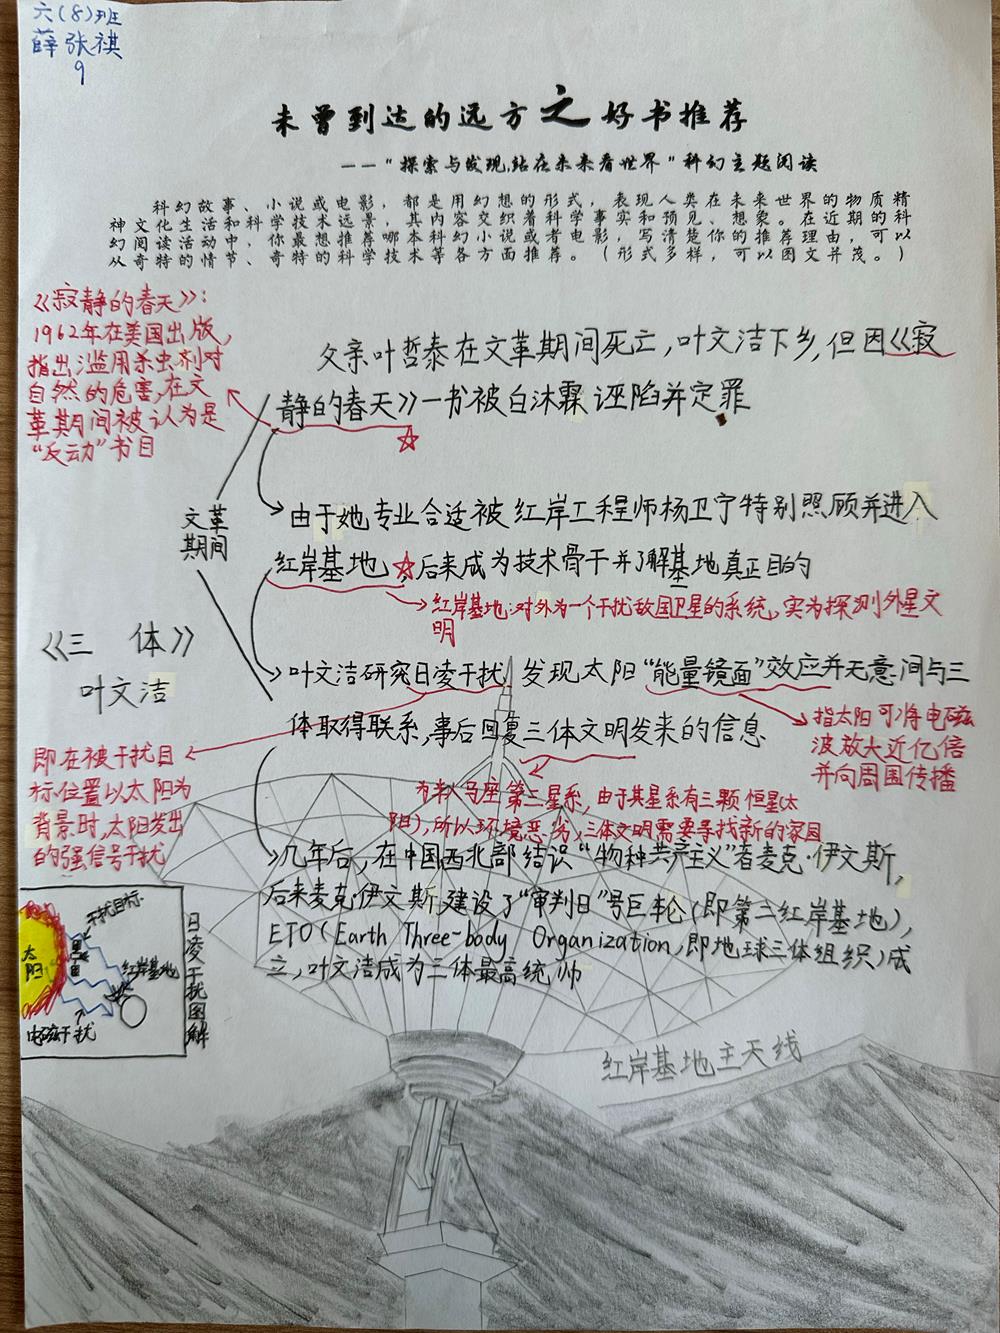 六(8)班
薛张祺
9
未曾到达的远方之好书推荐
——“探索与发现,站在未来看世界”科幻主题阅读
科幻故事、小说或电影,都是用幻想的形式,表现人类在未来世界的物质精
神文化生活和科学技术远景,其内容交织着科学事实和预见、想象。在近期的科
幻阅读活动中,你最想推荐哪本科幻小说或者电影,写清楚你的推荐理由,可以
从奇特的情节、奇特的科学技术等各方面推荐。(形式多样,可以图文并茂。)
《寂静的春天》:
1962年在美国出版,
指出滥用杀虫剂对
自然的危害,在文
革期间被认为是
“反动”书目
父亲叶哲泰在文革期间死亡,叶文洁下乡,但因《寂
静的春天》一书被白沐霖诬陷并定罪
文革
期间
由于她专业合适被红岸工程师杨卫宁特别照顾并进入
红岸基地,后来成为技术骨干并了解基地真正目的
红岸基地:对外为一个干扰敌国卫星的系统,实为探测外星文
明
《三 体》
叶文洁
叶文洁研究日凌干扰,发现太阳“能量镜面”效应并无意间与三
体取得联系,事后回复三体文明发来的信息
指太阳可将电磁
波放大近亿倍
并向周围传播
即在被干扰目
标位置以太阳为
背景时,太阳发出
的强信号干扰
为半人马座第三星系,由于其星系有三颗恒星(太
阳),所以环境恶劣,三体文明需要寻找新的家园
几年后,在中国西北部结识“物种共产主义”者麦克·伊文斯,
后来麦克·伊文斯建设了“审判日”号巨轮(即第二红岸基地),
ETO(Earth Three-body Organization,即地球三体组织)成
立,叶文洁成为三体最高统帅
干扰目标
太阳
红岸基地
电磁干扰
日凌干扰图解
红岸基地主天线